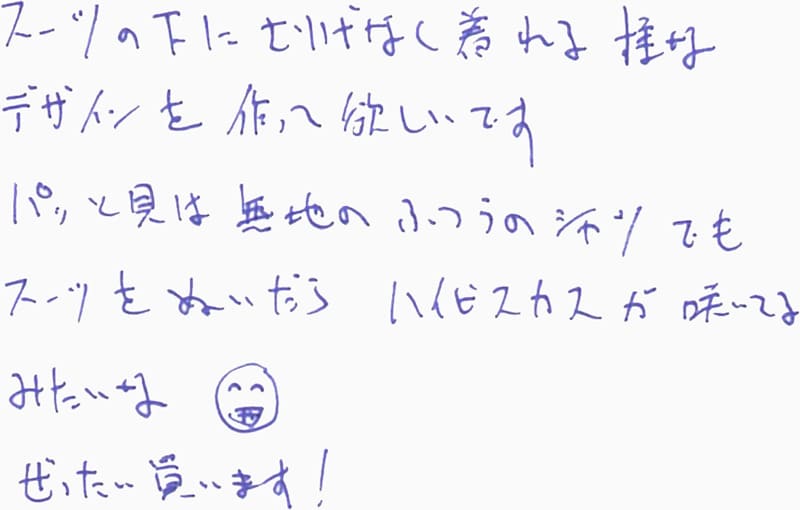 スーツの下にさりげなく着れる様な
デザインを作って欲しいです
パッと見は無地のふつうのシャツでも
スーツをぬいだらハイビスカスが咲いてる
みたいな
ぜったい買います!